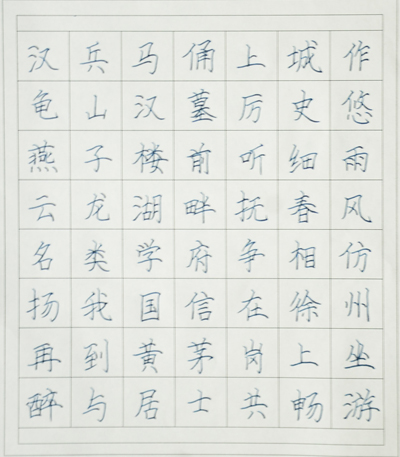 汉兵马俑上城作
龟山汉墓历史悠
燕子楼前听细雨
云龙湖畔抚春风
名类学府争相仿
扬我国信在徐州
再到黄茅岗上坐
醉与居士共畅游